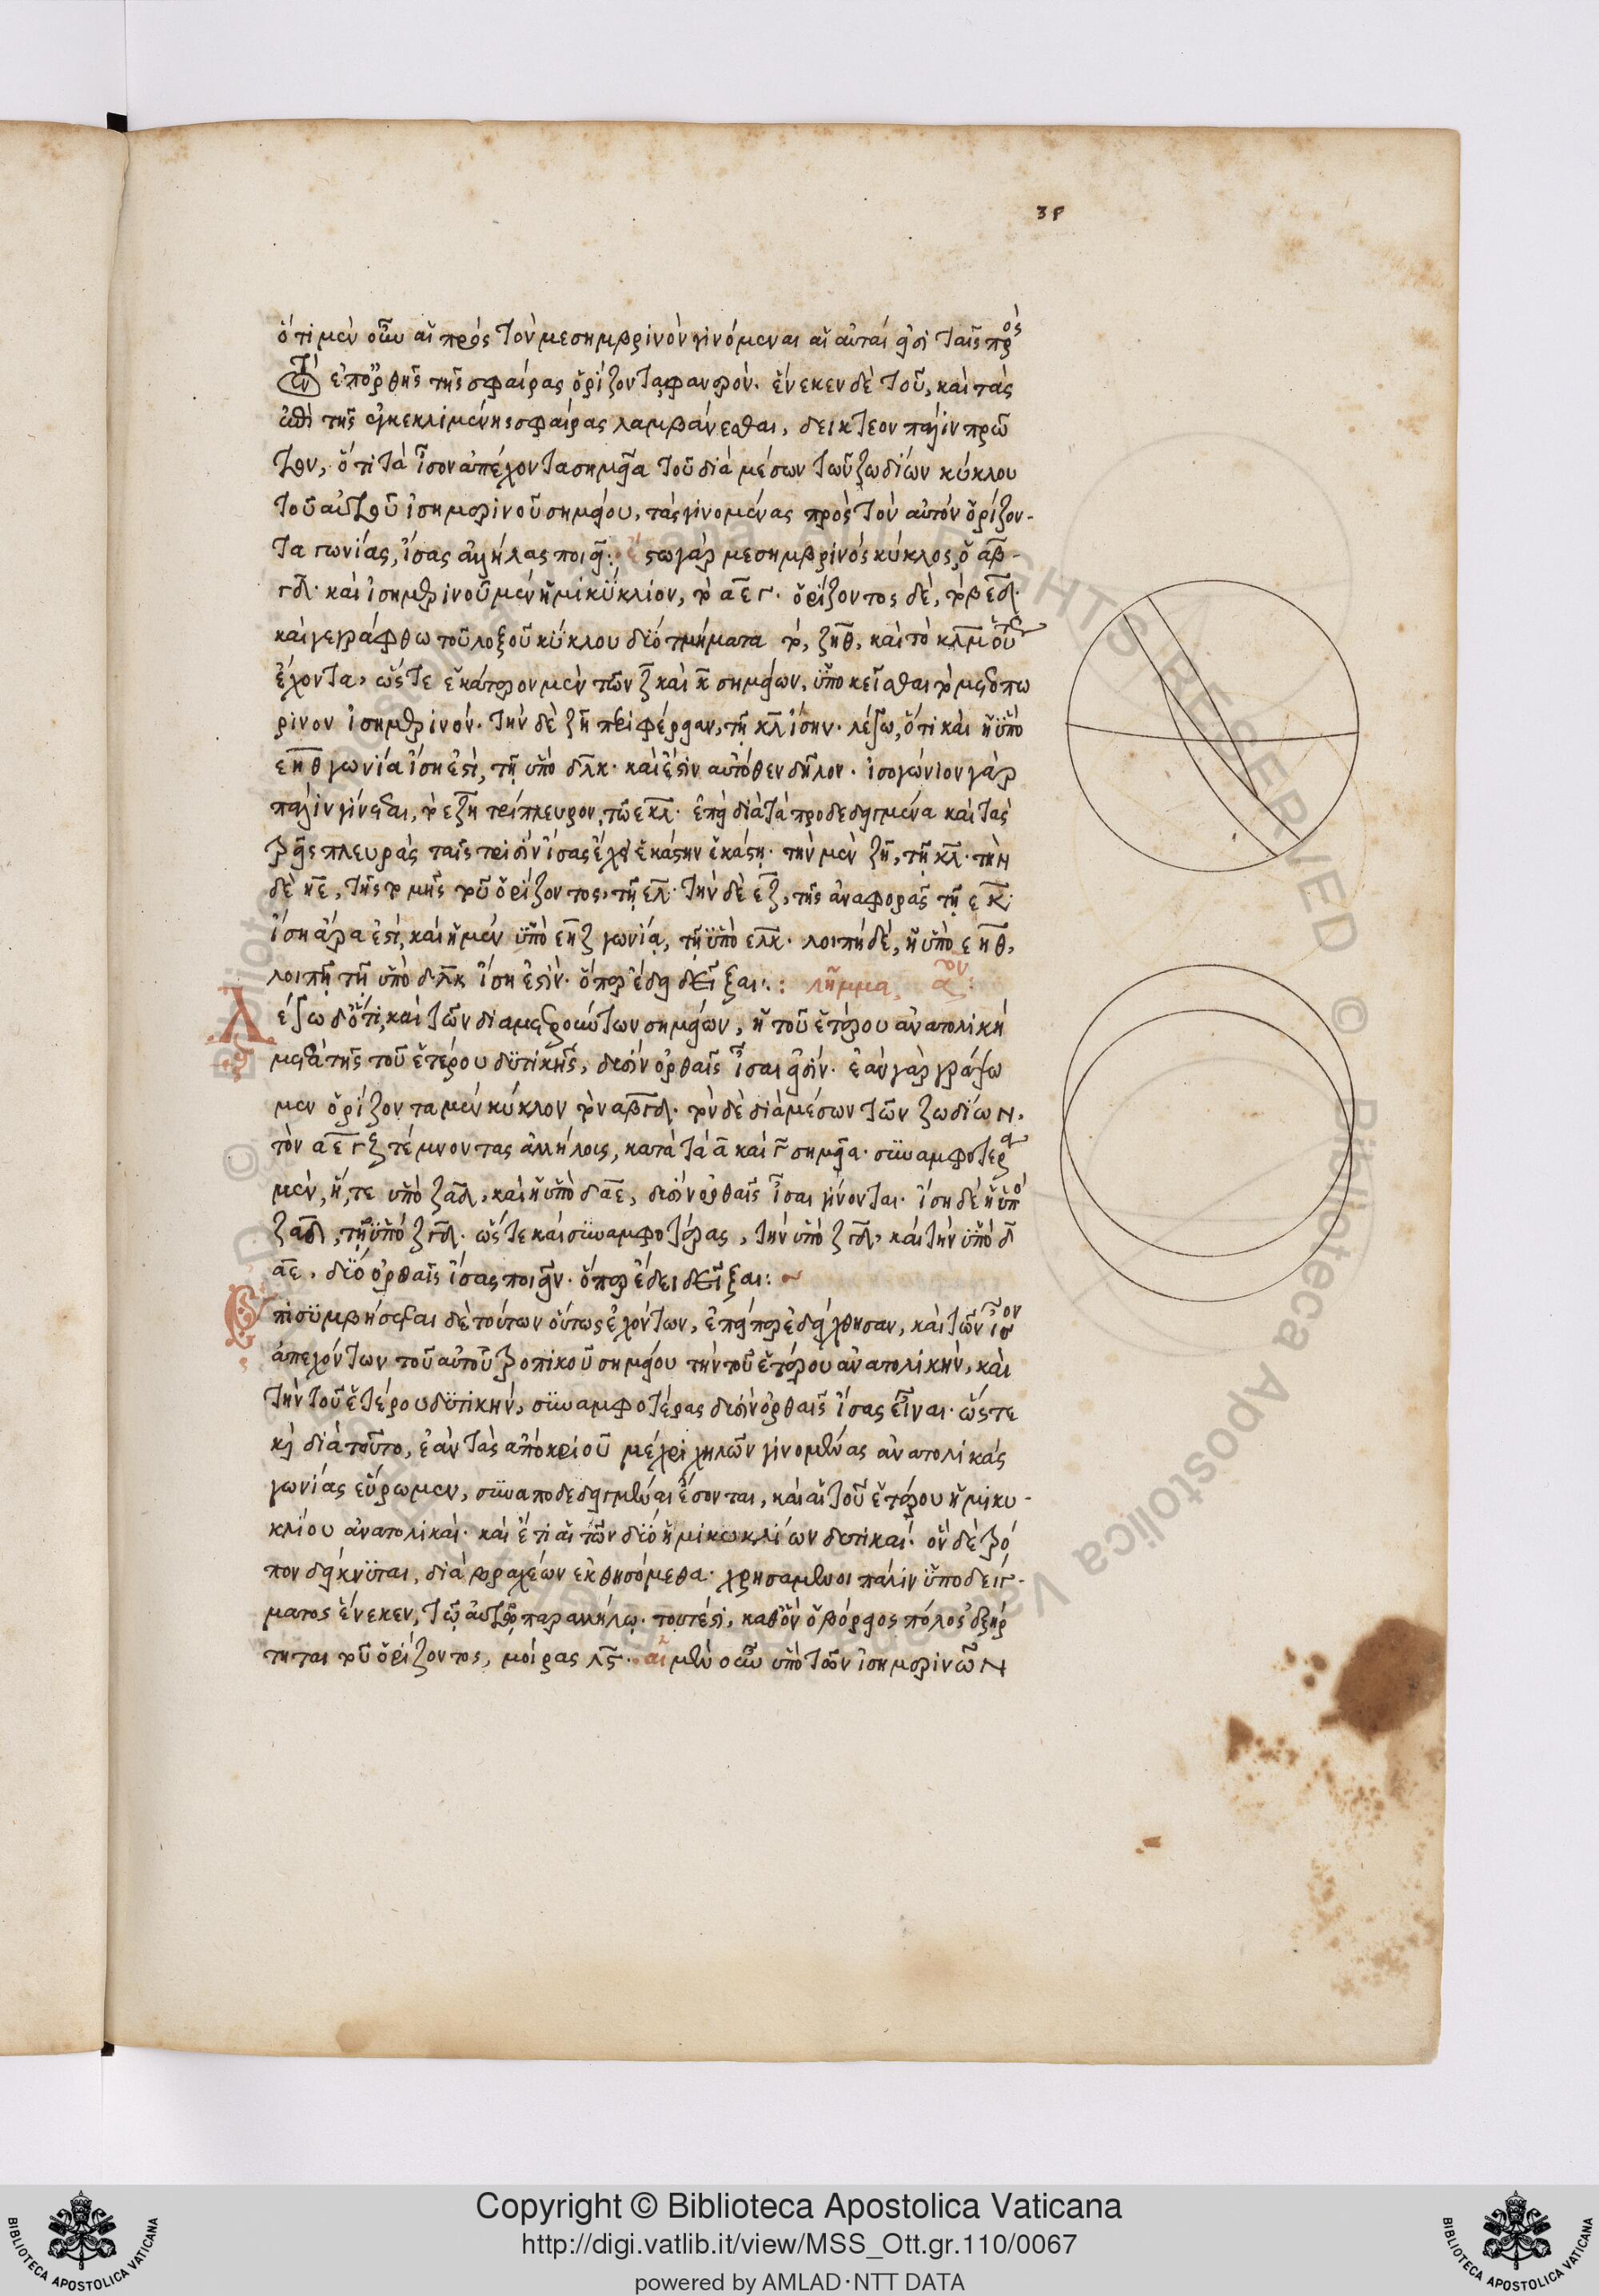 38
ὅτι μὲν οὖν αἱ πρὸς τὸν μεσημβρινὸν γινόμεναι αἱ αὐταί εἰσι ταῖς πρὸς
τὸν ἐπ' ὀρθῆς τῆς σφαίρας ὁρίζοντα φανερόν. ἕνεκεν δὲ τοῦ, καὶ τὰς
ἐπὶ τῆς ἐγκεκλιμένης σφαίρας λαμβάνεσθαι, δεικτέον πάλιν πρῶ
τον, ὅτι τὰ ἴσον ἀπέχοντα σημεῖα τοῦ διὰ μέσων τῶν ζωδίων κύκλου
τοῦ αὐτοῦ ἰσημερινοῦ σημείου, τὰς γινομένας πρὸς τὸν αὐτὸν ὁρίζον-
τα γωνίας, ἴσας ἀλλήλαις ποιεῖ: ἔστω γὰρ μεσημβρινὸς κύκλος, ὁ αβ-
γδ. καὶ ἰσημερινοῦ μὲν ἡμικύκλιον, τὸ αεγ. ὁρίζοντος δὲ, τὸ βεδ.
καὶ γεγράφθω τοῦ λοξοῦ κύκλου δύο τμήματα τὸ, ζηθ, καὶ τὸ κλμ οὕτως
ἔχοντα, ὥστε ἑκάτερον μὲν τῶν ζ καὶ κ σημείων, ὑποκεῖσθαι τὸ μετοπω
ρινὸν ἰσημερινόν. τὴν δὲ ζη περιφέρειαν, τῇ κλ ἴσην. λέγω, ὅτι καὶ ἡ ὑπὸ
εηθ γωνία ἴση ἐστὶ, τῇ ὑπὸ δλκ. καὶ ἔστιν αὐτόθεν δῆλον. ἰσογώνιον γὰρ
πάλιν γίνεται, τὸ εζη τρίπλευρον, τῷ εκλ. ἐπεὶ διὰ τὰ προδεδειγμένα καὶ τὰς
τρεῖς πλευρὰς ταῖς τρισὶν ἴσας ἔχει ἑκάστην ἑκάστῃ. τὴν μὲν ζη, τῇ κλ. τὴν
δὲ ηε, τῆς τομῆς τοῦ ὁρίζοντος, τῇ ελ. τὴν δὲ εζ, τῆς ἀναφορᾶς τῇ εκ.
ἴση ἄρα ἐστὶ, καὶ ἡ μὲν ὑπὸ εηζ γωνία, τῇ ὑπὸ ελκ. λοιπὴ δὲ, ἡ ὑπὸ εηθ,
λοιπῇ τῇ ὑπὸ δλκ ἴση ἐστίν. ὅπερ ἔδει δεῖξαι: λῆμμα, αον:
Λέγω δ' ὅτι, καὶ τῶν διαμετρούντων σημείων, ἡ τοῦ ἑτέρου ἀνατολικὴ
μετὰ τῆς τοῦ ἑτέρου δυτικῆς, δυσὶν ὀρθαῖς ἴσαι εἰσίν. ἐὰν γὰρ γράψω
μεν ὁρίζοντα μὲν κύκλον τὸν αβγδ. τὸν δὲ διὰ μέσων τῶν ζωδίων,
τὸν αεγζ τέμνοντας ἀλλήλοις, κατὰ τὰ α καὶ γ σημεῖα. συναμφότεραι
μὲν, ἥ, τε ὑπὸ ζαδ, καὶ ἡ ὑπὸ δαε, δυσὶν ὀρθαῖς ἴσαι γίνονται. ἴση δὲ ἡ ὑπὸ
ζαδ, τῇ ὑπὸ ζγδ. ὥστε καὶ συναμφοτέρας, τὴν ὑπὸ ζγδ, καὶ τὴν ὑπὸ δ
αε, δύο ὀρθαῖς ἴσας ποιεῖν. ὅπερ ἔδει δεῖξαι: ~
Ἐπισυμβήσεται δὲ τούτων οὕτως ἐχόντων, ἐπείπερ ἐδείχθησαν, καὶ τῶν ἴσον
ἀπεχόντων τοῦ αὐτοῦ τροπικοῦ σημείου τὴν τοῦ ἑτέρου ἀνατολικὴν, καὶ
τὴν τοῦ ἑτέρου δυτικήν, συναμφοτέρας δυσὶν ὀρθαῖς ἴσας εἶναι. ὥστε
καὶ διὰ τοῦτο, ἐὰν τὰς ἀπὸ κριοῦ μέχρι χηλῶν γινομένας ἀνατολικάς
γωνίας εὕρωμεν, συναποδεδειγμέναι ἔσονται, καὶ αἱ τοῦ ἑτέρου ἡμικυ-
κλίου ἀνατολικαί. καὶ ἔτι αἱ τῶν δύο ἡμικυκλίων δυτικαί. ὃν δὲ τρό
πον δείκνυται, διὰ βραχέων ἐκθησόμεθα. χρησάμενοι πάλιν ὑποδείγ-
ματος ἕνεκεν, τῷ αὐτῷ παραλλήλῳ. τουτέστι, καθ' ὃν ὁ βόρειος πόλος ἐξῆρ
τηται τοῦ ὁρίζοντος, μοίρας λς. αἱ μὲν οὖν ὑπὸ τῶν ἰσημερινῶν
Copyright © Biblioteca Apostolica Vaticana
http://digi.vatlib.it/view/MSS_Ott.gr.110/0067
powered by AMLAD·NTT DATA
BIBLIOTECA APOSTOLICA VATICANA
BIBLIOTECA APOSTOLICA VATICANA